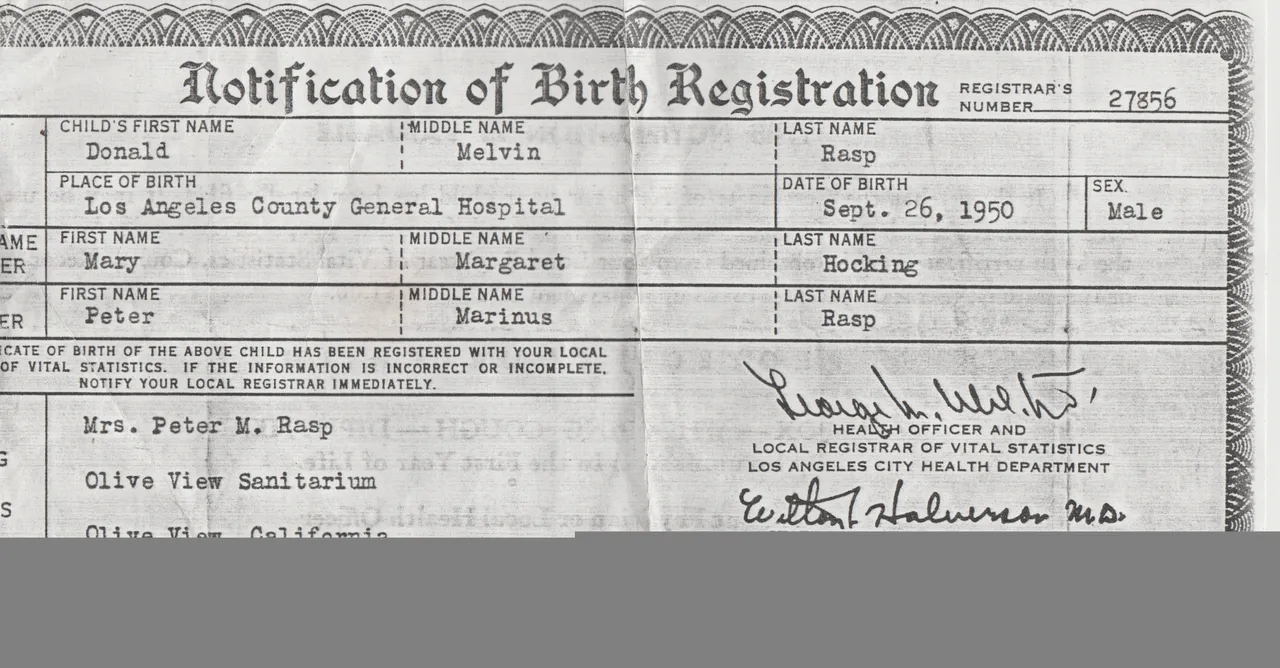 Notification of Birth Registration REGISTRAR'S NUMBER 27856
CHILD'S FIRST NAME MIDDLE NAME LAST NAME
Donald Melvin Rasp
PLACE OF BIRTH DATE OF BIRTH SEX.
Los Angeles County General Hospital Sept. 26, 1950 Male
AME FIRST NAME MIDDLE NAME LAST NAME
ER Mary Margaret Hocking
FIRST NAME MIDDLE NAME LAST NAME
ER Peter Marinus Rasp
CATE OF BIRTH OF THE ABOVE CHILD HAS BEEN REGISTERED WITH YOUR LOCAL
OF VITAL STATISTICS. IF THE INFORMATION IS INCORRECT OR INCOMPLETE,
NOTIFY YOUR LOCAL REGISTRAR IMMEDIATELY.
Mrs. Peter M. Rasp
G
Olive View Sanitarium
S
Olive View, California
George M.
HEALTH OFFICER AND
LOCAL REGISTRAR OF VITAL STATISTICS
LOS ANGELES CITY HEALTH DEPARTMENT
Wilton Halverson M.D.